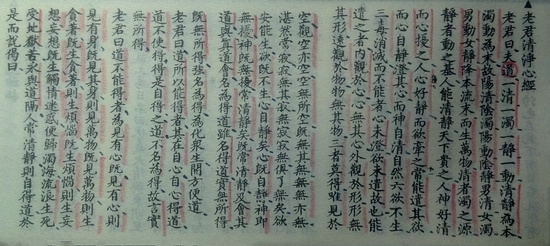 ▲老君清淨心經
老君曰夫道一清一濁一靜一動清靜為本
濁動為末故陽清陰濁陽動陰靜男清女濁
男動女靜降本流末而生萬物清者濁之源
靜者動之基人能清靜天下貴之人神好清
而心擾之人心好靜而欲牽之常能遣其欲
而心自靜澄其心而神自清自然六欲不生
三毒消滅而不能者心未澄欲未遣故也能
遣之者內觀於心心無其心外觀於形形無
其形遠觀於物物無其物三者莫得唯見於
空觀空亦空空無所空既無其無無無亦無
湛然常寂寂無其寂無寂寂無俱了無矣欲
安能生欲既不生心自靜矣心既自靜神即
無擾神既無擾常清靜矣既常清靜及會其
道與真道會名為得道雖名得道實無所得
既無所得強名為得為化眾生開方便道
老君曰道所以能得者其在自心自心得道
道不使得得是自得之道不名為得故言實
無所得
老君曰道不能得者為見有心既見有心則
見有身既見其身則見萬物既見萬物則生
貪著既生貪著則生煩惱既生煩惱則生妄
想妄想既生觸情迷惑便歸濁海流浪生死
受地獄苦永與道隔人常清靜則自得道於
是而說偈曰